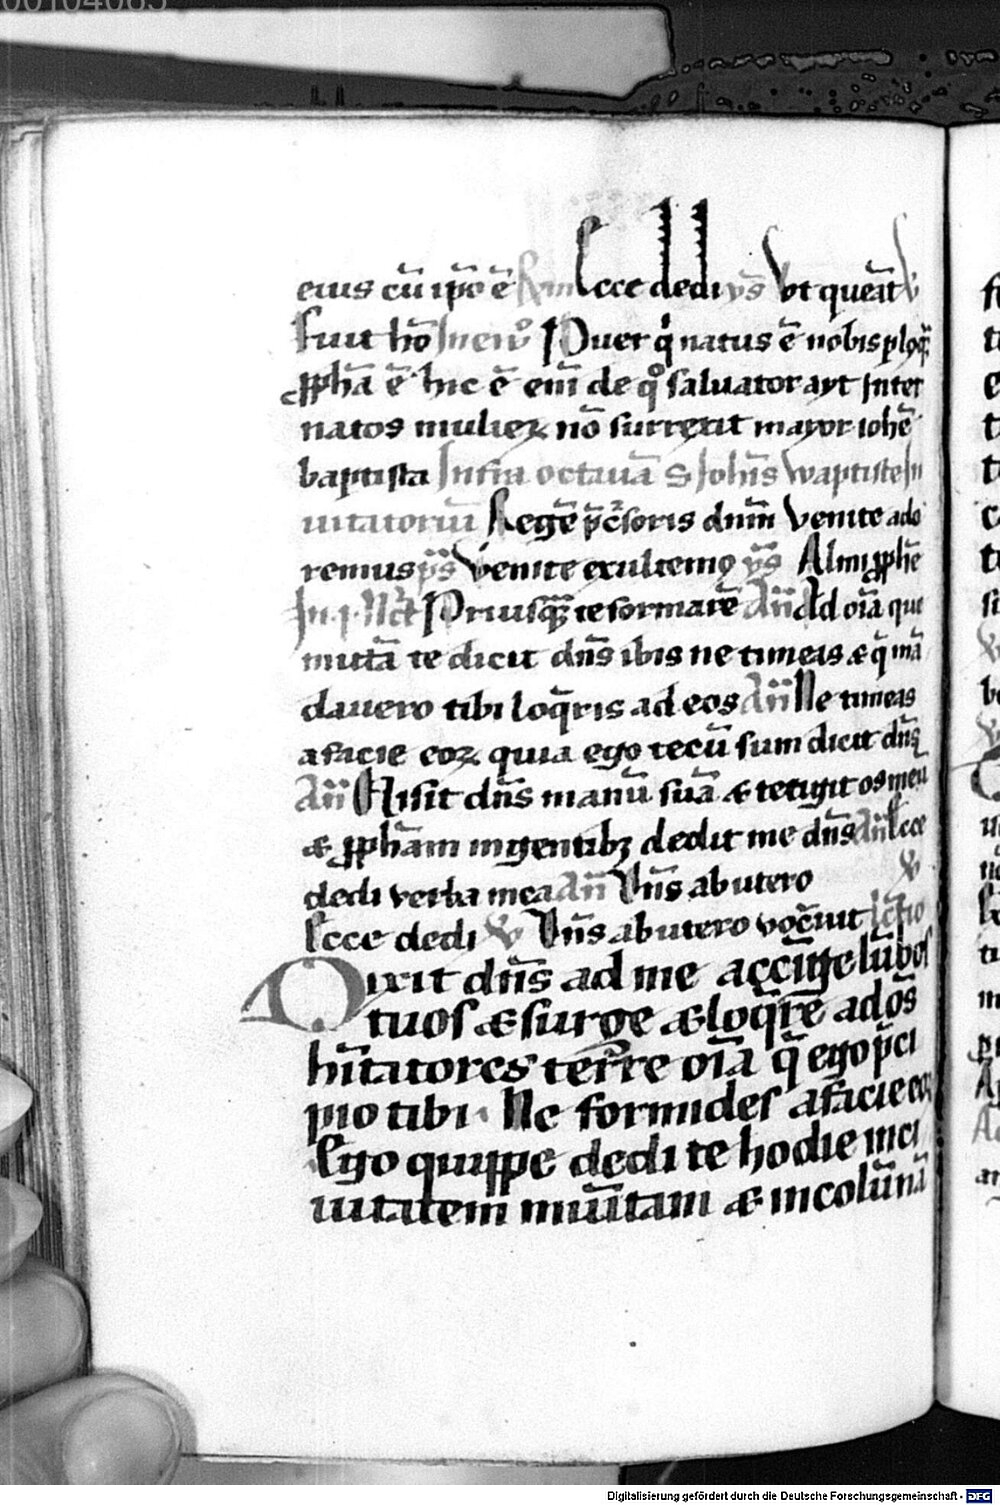 00104085
eius cū ip̄o ē R̄m Ecce dedi vs̄ Vt queāt V
Fuit hō In euͦ Puer q̄ natus ē nobis pl
ꝓpha ē hic ē eni de qͦ saluator ayt Inter
natos mulieꝝ nō surrexit mayor iohē
baptista Infra octauā S Iohīs waptiste In
uitatoriū Regē p̄cursoris dnm̄ Venite ado
remus ps̄ Venite exultemꝰ ys̄ Almi ꝓphē
In .j. Noct̄ Priusq̄ te formarē Añ Ad oīa que
mittā te dicit dn̄s ibis ne timeas & q̄ mā
dauero tibi loq̄ris ad eos Añ Ne timeas
a facie eoꝝ quia ego tecū sum dicit dn̄s
Añ Misit dn̄s manū suā & tetigit os meū
& ꝓphām in gentibꝫ dedit me dn̄s Añ Ecce
dedi verba mea Añ Dn̄s ab utero V
Ecce dedi V Dn̄s ab utero voc̄auit lc̄tio
Dixit dn̄s ad me accinge lūbos
tuos & surge & loq̄re ad os̄
hītatores terre oīa q̄ ego p̄ci
pio tibi. Ne formides a facie eoꝝ
Ego quippe dedi te hodie in ci
uitatem munītam & in colūnā
Digitalisierung gefördert durch die Deutsche Forschungsgemeinschaft - DFG